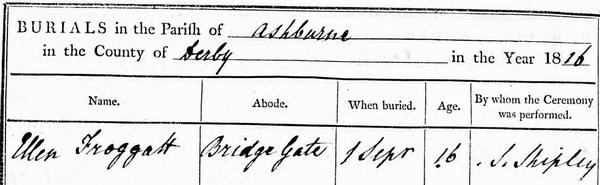 BURIALS in the Parish of Ashburne
in the County of Derby in the Year 1816
Name. Abode. When buried. Age. By whom the Ceremony was performed.
Ellen Froggatt Bridge Gate 1 Sepr 16 S. Shipley